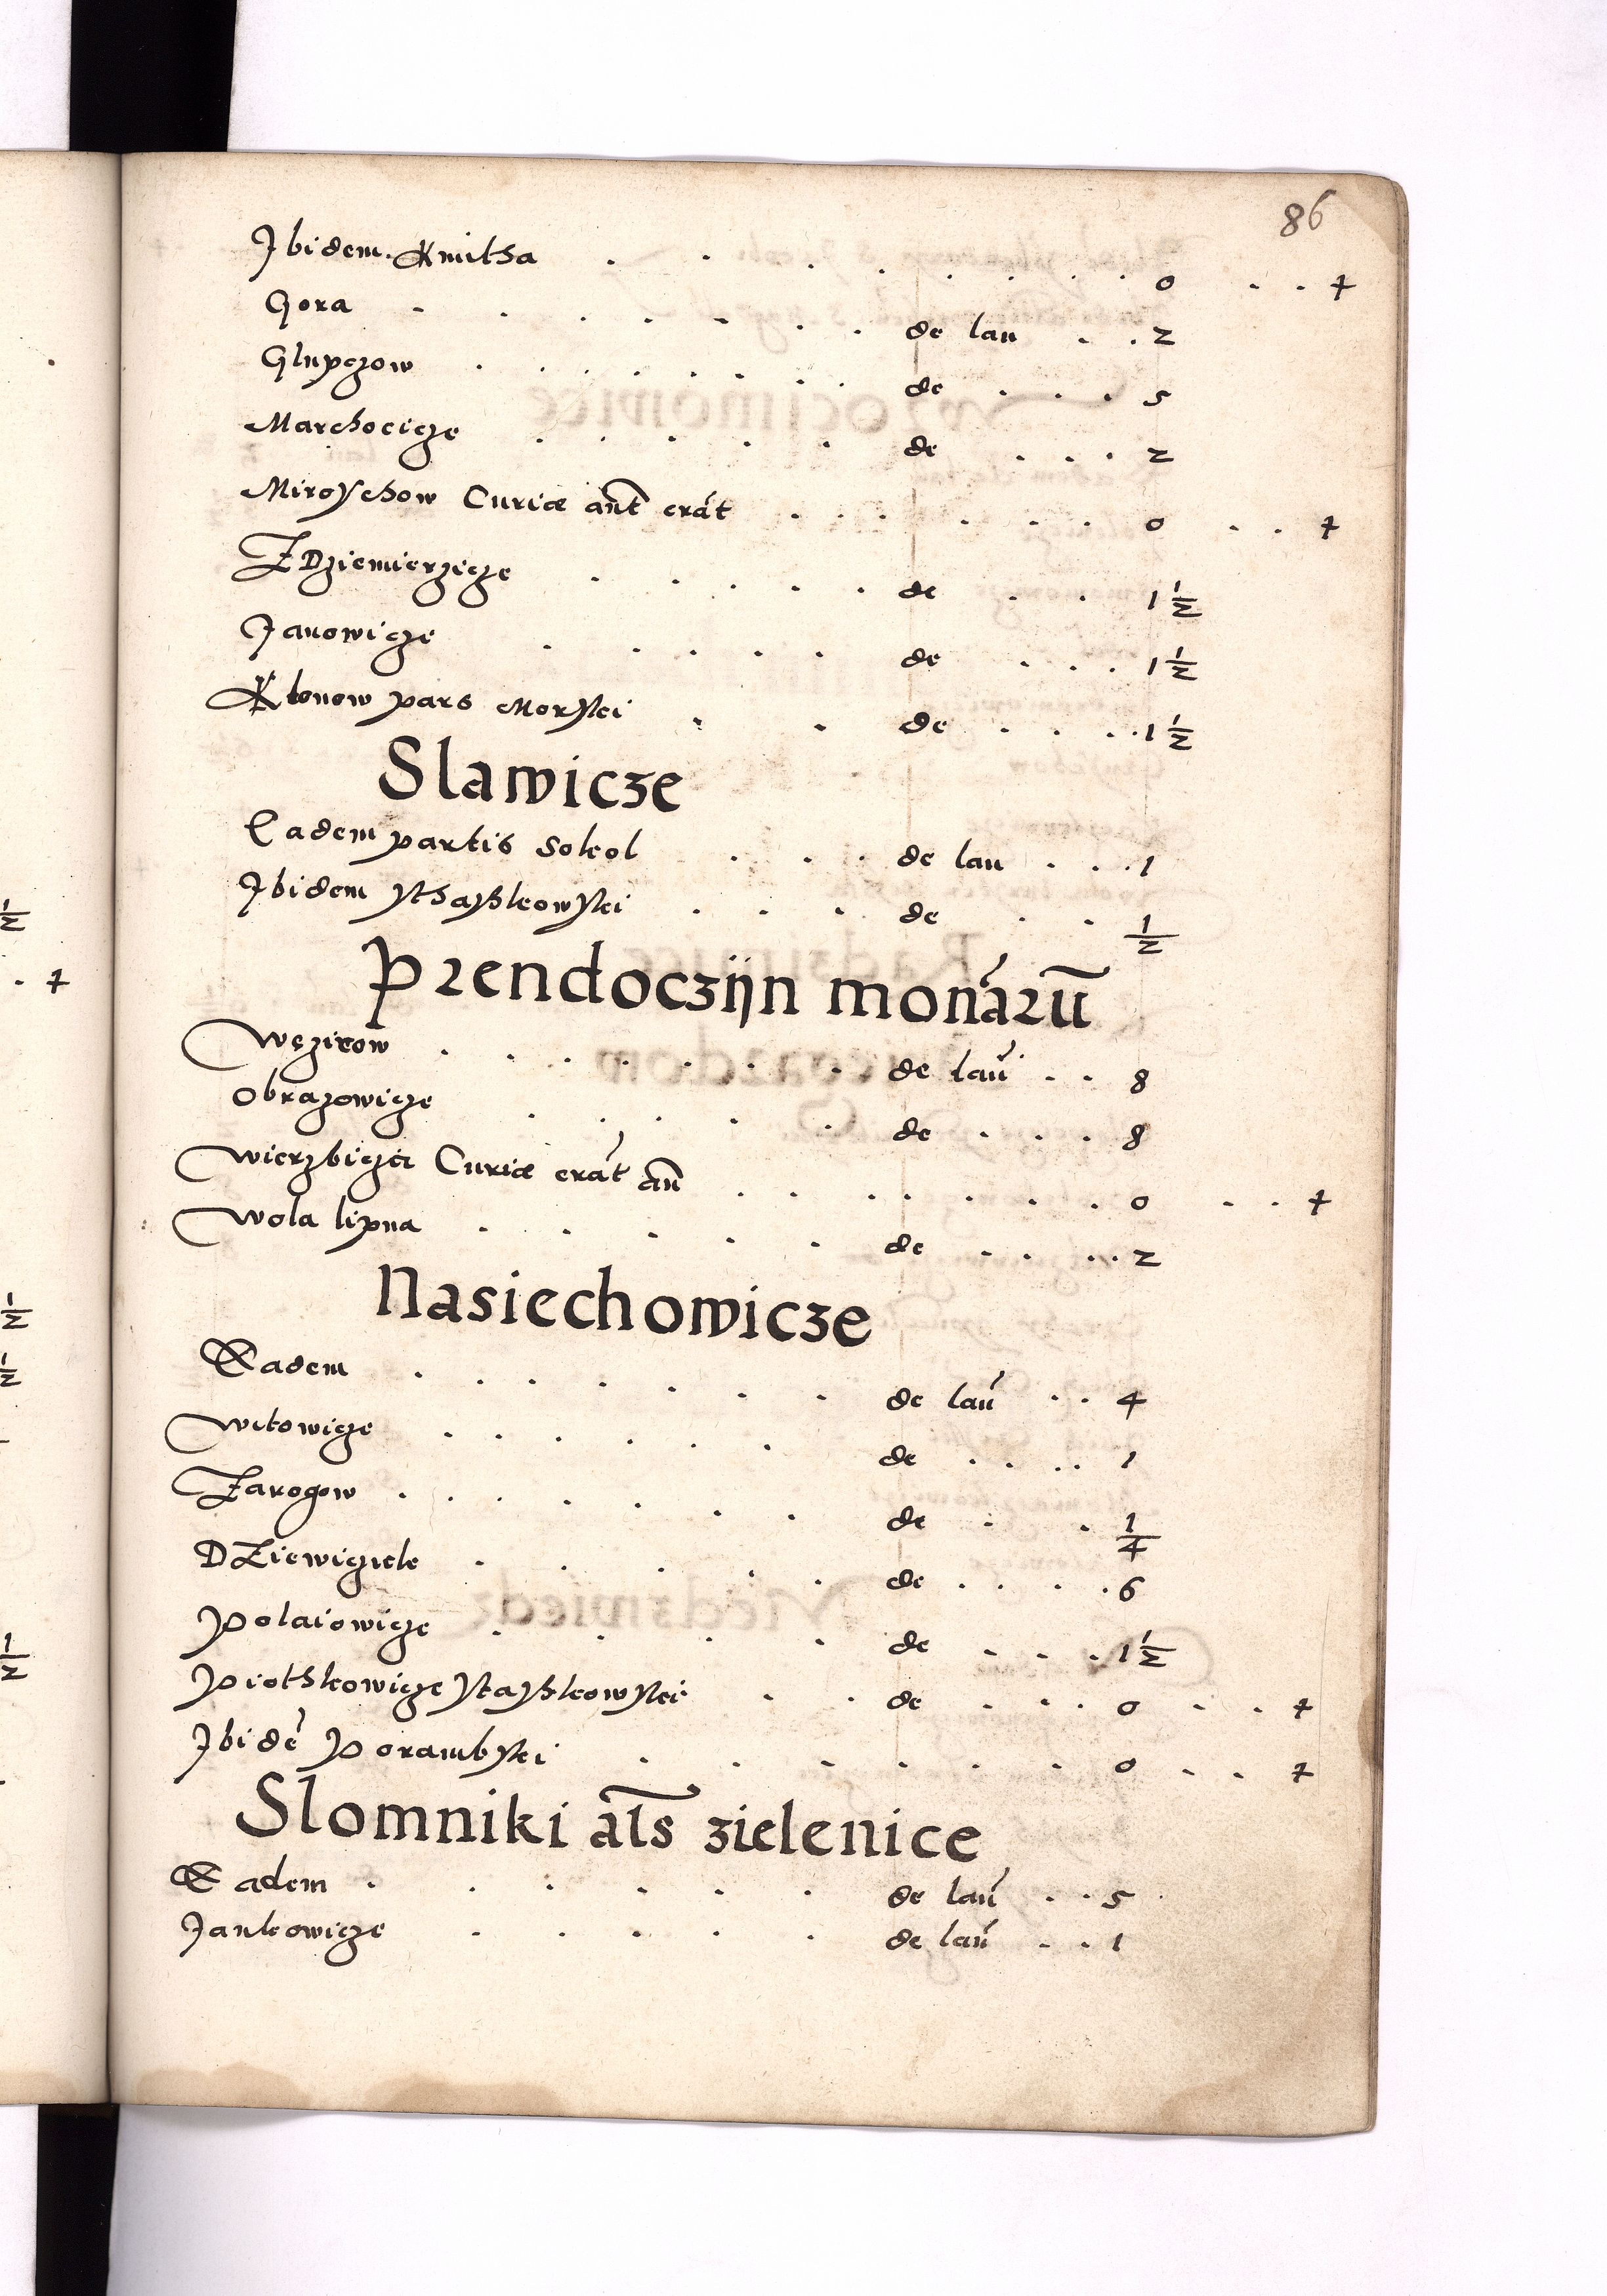 86
Ibidem. Kmitha . . . . . . . . . 0 . . +
Gora . . . . . . . de lan . . 2
Glupczow . . . . . . . de . . . 5
Marchocicze . . . . . de . . . 2
Miroschow Curiæ ant̃ erāt . . . . . . 0 . . +
ZDziemierzicze . . . . . de . . 1 1/2
Janowicze . . . . . de . . . 1 1/2
Klonow pars Morskei . . de . . . . 1 1/2
Slawicze
Eadem partis Sokol . . . de lan . . . 1
Ibidem Sthaszkowskei . . . de . . 1/2
Prendoczijn monārū
Węzirow . . . . . . . de lañ . . 8
Obrazowicze . . . . . de . . . 8
Wierzbicza Curiæ erāt añ . . . . . . . 0 . . +
Wola lipna . . . . . de . . . . 2
Nasiechowicze
Eadem . . . . . . . de lañ . . 4
Witowicze . . . . . . de . . . . 1
Zarogow . . . . . . . de . . 1/4
DZiewięczicle . . . . . de . . . . 6
Polaiowicze . . . . de . . . 1 1/2
Piothkowicze Staszkowskei . . de . . . 0 . . +
Ibidē Porambskei . . . . . . 0 . . +
Slomniki al̃s zielenice
Eadem . . . . . . de lañ . . 5
Jankowicze . . . . . de lañ . . 1